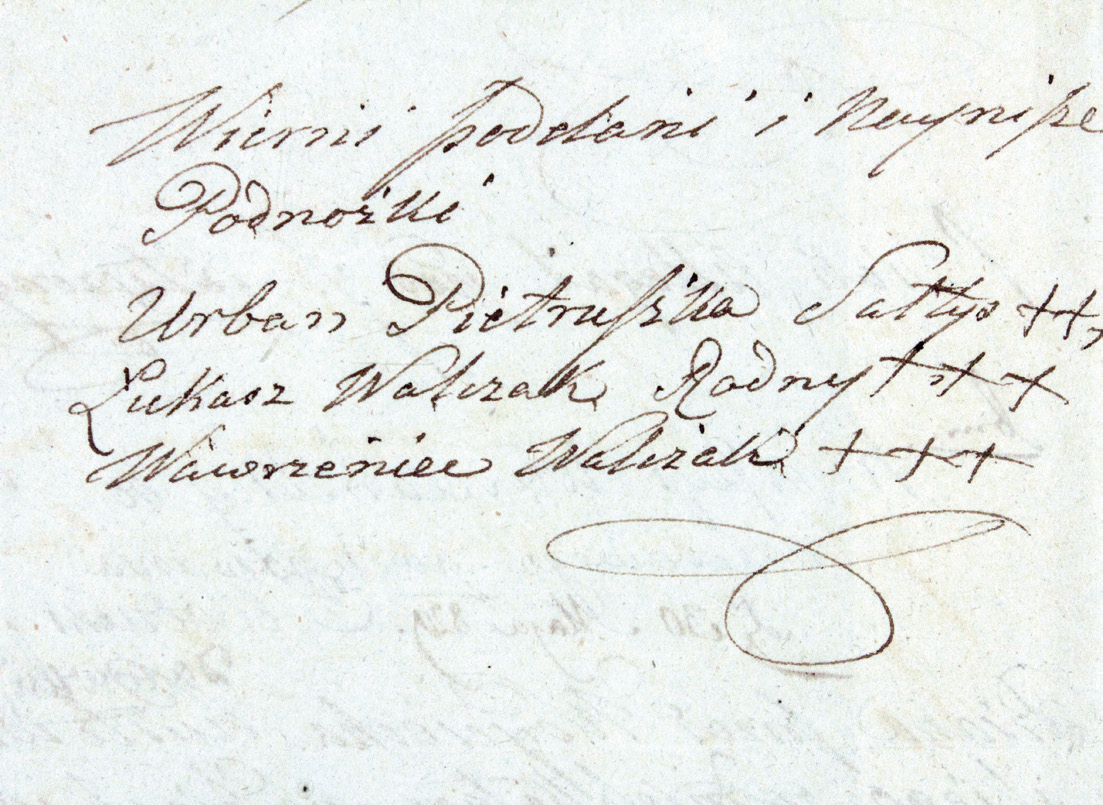 Wierni poddani i Nayniższe
Podnożki
Urban Pietruszka Sałtys +++
Łukasz Walczak Radny +++
Wawrzeniec Walczak +++